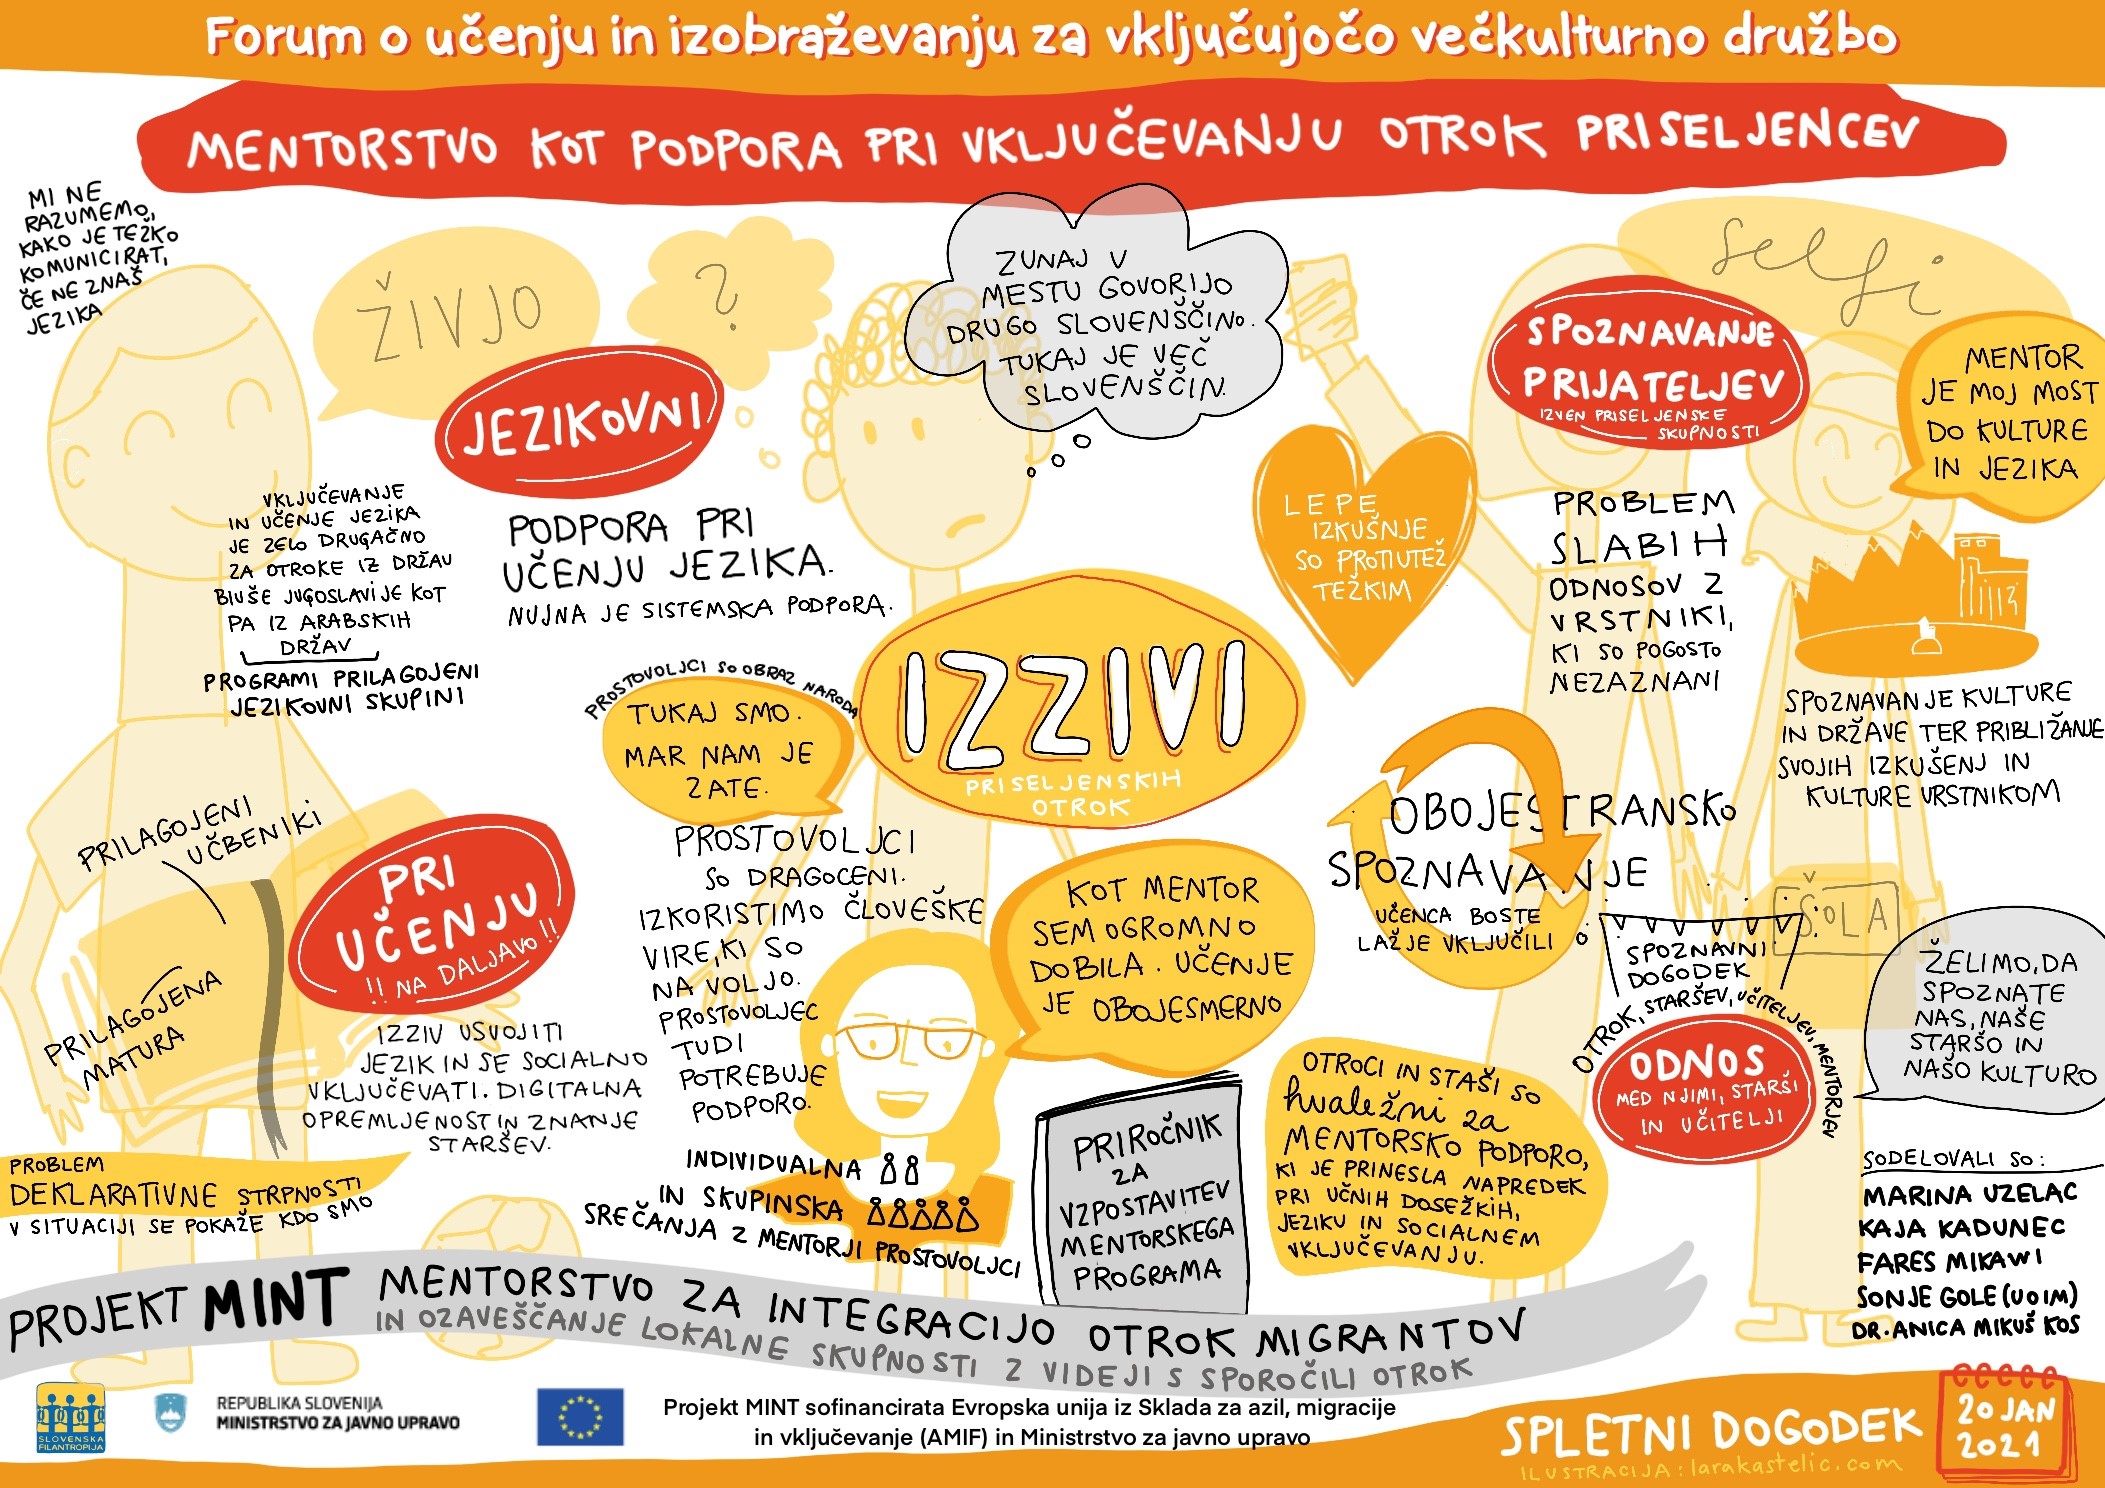 Forum o učenju in izobraževanju za vključujočo večkulturno družbo
MENTORSTVO KOT PODPORA PRI VKLJUČEVANJU OTROK PRISELJENCEV
MI NE
RAZUMEMO,
KAKO JE TEŽKO
KOMUNICIRAT,
ČE NE ZNAŠ
JEZIKA
ŽIVJO
?
JEZIKOVNI
VKLJUČEVANJE
IN UČENJE JEZIKA
JE ZELO DRUGAČNO
ZA OTROKE IZ DRŽAV
BIVŠE JUGOSLAVIJE KOT
PA IZ ARABSKIH
DRŽAV
PROGRAMI PRILAGOJENI
JEZIKOVNI SKUPINI
PODPORA PRI
UČENJU JEZIKA.
NUJNA JE SISTEMSKA PODPORA.
ZUNAJ V
MESTU GOVORIJO
DRUGO SLOVENŠČINO.
TUKAJ JE VEČ
SLOVENŠČIN.
selfi
SPOZNAVANJE
PRIJATELJEV
IZVEN PRISELJENSKE
SKUPNOSTI
MENTOR
JE MOJ MOST
DO KULTURE
IN JEZIKA
LEPE
IZKUŠNJE
SO PROTIUTEŽ
TEŽKIM
PROBLEM
SLABIH
ODNOSOV Z
VRSTNIKI,
KI SO POGOSTO
NEZAZNANI
SPOZNAVANJE KULTURE
IN DRŽAVE TER PRIBLIŽANJE
SVOJIH IZKUŠENJ IN
KULTURE VRSTNIKOM
IZZIVI
PRISELJENSKIH
OTROK
PROSTOVOLJCI SO OBRAZ NARODA
TUKAJ SMO.
MAR NAM JE
ZATE.
PROSTOVOLJCI
SO DRAGOCENI.
IZKORISTIMO ČLOVEŠKE
VIRE, KI SO
NA VOLJO.
PROSTOVOLJEC
TUDI
POTREBUJE
PODPORO.
INDIVIDUALNA
IN SKUPINSKA
SREČANJA Z MENTORJI PROSTOVOLJCI
PRILAGOJENI
UČBENIKI
PRILAGOJENA
MATURA
PRI
UČENJU
!! NA DALJAVO !!
IZZIV USVOJITI
JEZIK IN SE SOCIALNO
VKLJUČEVATI. DIGITALNA
OPREMLJENOST IN ZNANJE
STARŠEV.
PROBLEM
DEKLARATIVNE STRPNOSTI
V SITUACIJI SE POKAŽE KDO SMO
KOT MENTOR
SEM OGROMNO
DOBILA. UČENJE
JE OBOJESMERNO
PRIROČNIK
ZA
VZPOSTAVITEV
MENTORSKEGA
PROGRAMA
OBOJESTRANSKO
SPOZNAVANJE
UČENCA BOSTE
LAŽJE VKLJUČILI
OTROCI IN STAŠI SO
hvaležni za
MENTORSKO PODPORO,
KI JE PRINESLA NAPREDEK
PRI UČNIH DOSEŽKIH,
JEZIKU IN SOCIALNEM
VKLJUČEVANJU.
ŠOLA
SPOZNAVNI
DOGODEK
OTROK, STARŠEV, UČITELJEV, MENTORJEV
ODNOS
MED NJIMI, STARŠI
IN UČITELJI
ŽELIMO, DA
SPOZNATE
NAS, NAŠE
STARŠO IN
NAŠO KULTURO
SODELOVALI SO:
MARINA UZELAC
KAJA KADUNEC
FARES MIKAWI
SONJE GOLE (UOIM)
DR. ANICA MIKUŠ KOS
PROJEKT MINT MENTORSTVO ZA INTEGRACIJO OTROK MIGRANTOV
IN OZAVEŠČANJE LOKALNE SKUPNOSTI Z VIDEJI S SPOROČILI OTROK
SLOVENSKA
FILANTROPIJA
REPUBLIKA SLOVENIJA
MINISTRSTVO ZA JAVNO UPRAVO
Projekt MINT sofinancirata Evropska unija iz Sklada za azil, migracije
in vključevanje (AMIF) in Ministrstvo za javno upravo
SPLETNI DOGODEK
20 JAN
2021
ILUSTRACIJA: larakastelic.com